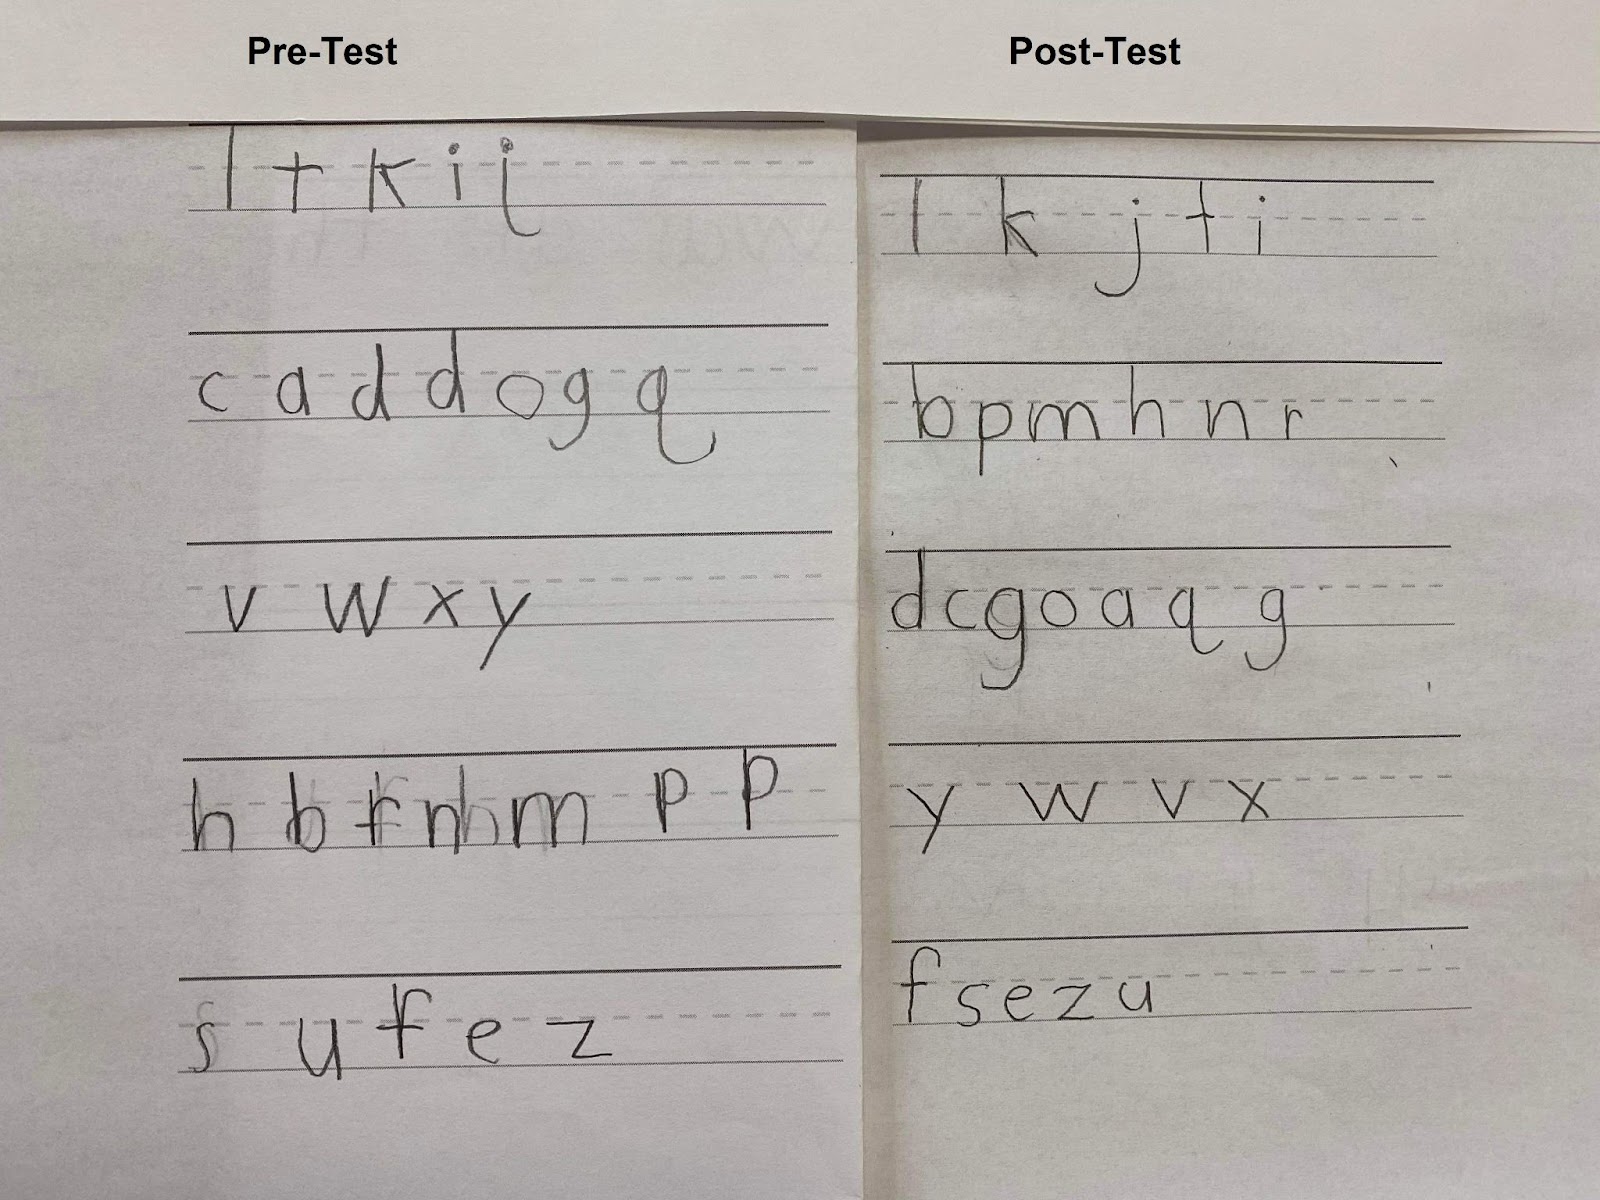 Pre-Test
l t k i j
c a d d o g q
v w x y
h b r n h m p p
s u f e z
Post-Test
l k j t i
b p m h n r
d c g o a q g
y w v x
f s e z u